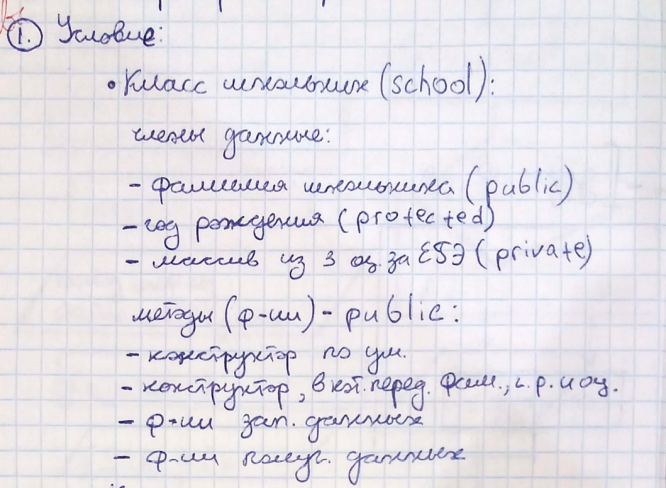 1. Условие:
• Класс школьник (school):
члены данные:
- фамилия школьника (public)
- год рождения (protected)
- массив из 3 оц. за ЕГЭ (private)
методы (ф-ии) - public:
- конструктор по ум.
- конструктор, в кот. перед. фам., г.р. и оц.
- ф-ии зап. данных
- ф-ии получ. данных